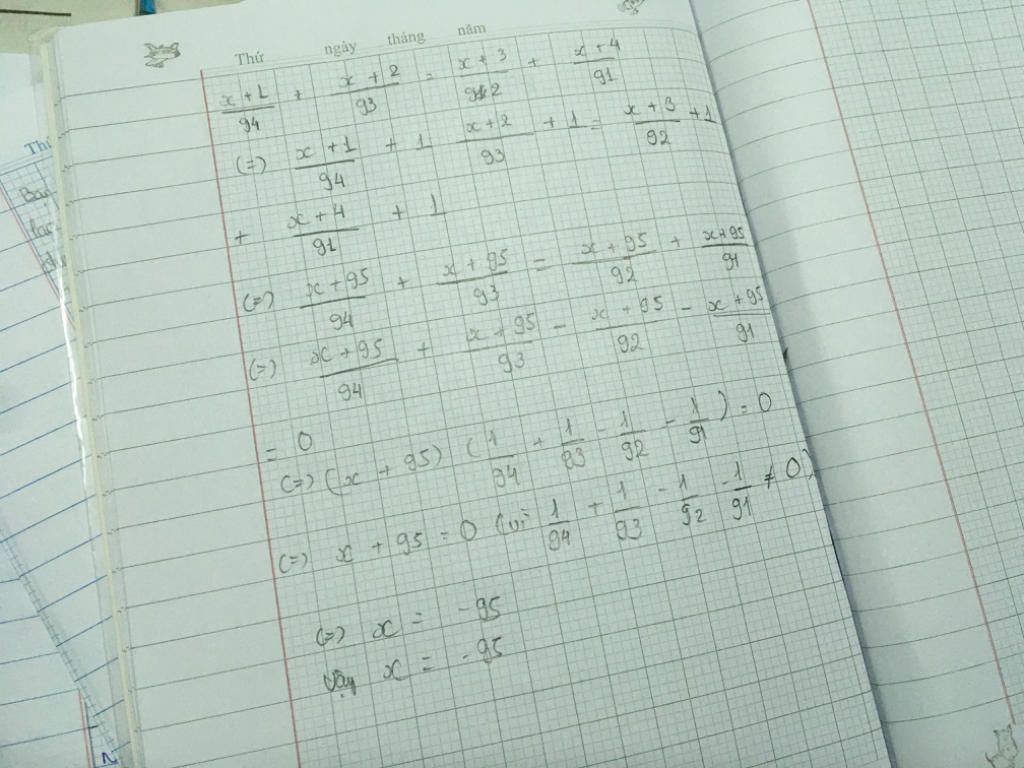 Thứ ngày tháng năm
x+1/94 + x+2/93 = x+3/92 + x+4/91
(=) x+1/94 + 1 x+2/93 + 1 = x+3/92 + 1
+ x+4/91 + 1
(=) x+95/94 + x+95/93 = x+95/92 + x+95/91
(=) x+95/94 + x+95/93 - x+95/92 - x+95/91
= 0
(=) (x+95) (1/94 + 1/93 - 1/92 - 1/91) = 0
(=) x+95 = 0 (vì 1/94 + 1/93 - 1/92 - 1/91 ≠ 0)
(=) x = -95
Vậy x = -95